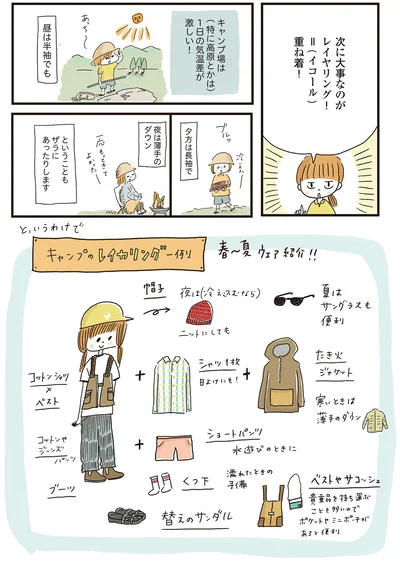 次に大事なのが
レイヤリング！
＝(イコール)
重ね着！
キャンプ場は
(特に高原とかは)
1日の気温差が
激しい！
あっち〜
昼は半袖でも
夕方は長袖で
ブルッ
夜は薄手の
ダウン
ということも
ザラに
あったりします
というわけで
キャンプのレイヤリング一例
春〜夏ウェア紹介!!
帽子
夜は(冷え込むなら)
ニットにしても
夏は
サングラスも
便利
コットンシャツ
×
ベスト
シャツ1枚
日よけにも！
たき火
ジャケット
寒いときは
薄手のダウン
コットンや
ジーンズ
パンツ
ショートパンツ
水遊びのときに
ブーツ
くつ下
濡れたときの
予備
替えのサンダル
ベストやサコッシュ
貴重品を持ち運ぶ
ことも多いので
ポケットやミニポーチが
あると便利